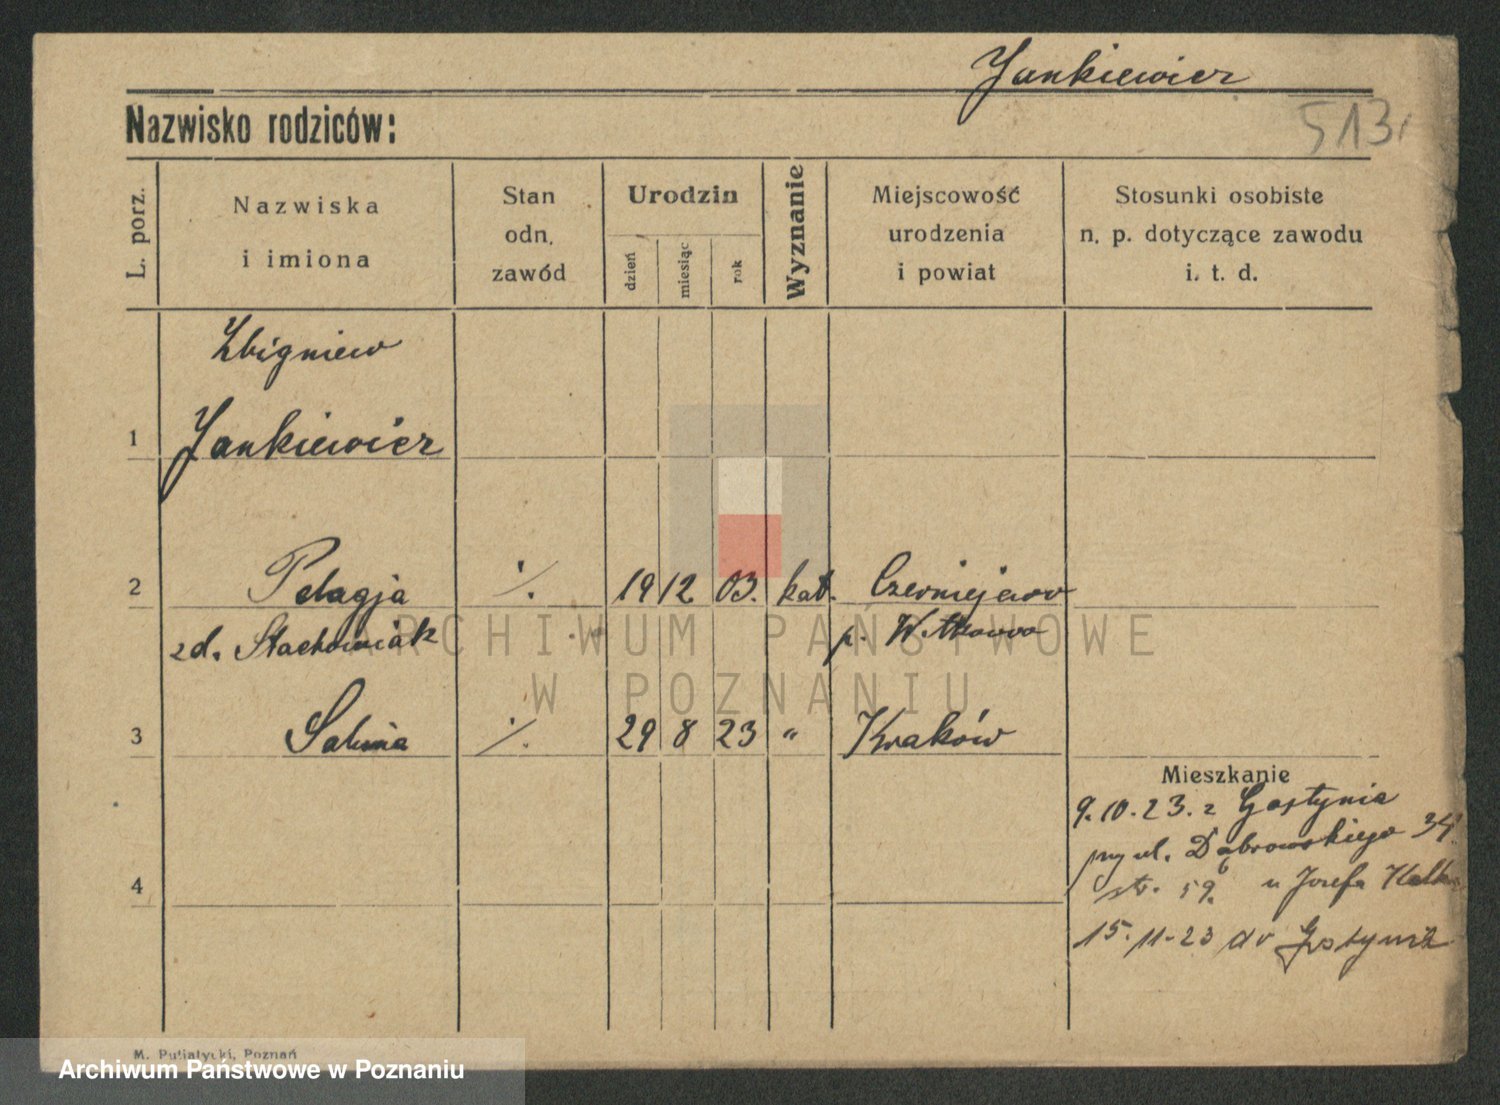 Jankiewicz
513
Nazwisko rodziców:
L. porz.
Nazwiska
i imiona
Stan
odn.
zawód
Urodzin
dzień
miesiąc
rok
Wyznanie
Miejscowość
urodzenia
i powiat
Stosunki osobiste
n. p. dotyczące zawodu
i. t. d.
Zbigniew
1 Jankiewicz
2 Pelagja ./. 19 12 03. kat. Czerniejewo
zd. Stachowiak p. Witkowo
3 Salunia ./. 29 8 23 " Kraków
Mieszkanie
9.10.23. z Gostynia
przy ul. Dąbrowskiego 34
4
str. 59. u Józefa
15.11-23 do Gostynia
ARCHIWUM PAŃSTWOWE
W POZNANIU
M. Putiatycki, Poznań
Archiwum Państwowe w Poznaniu